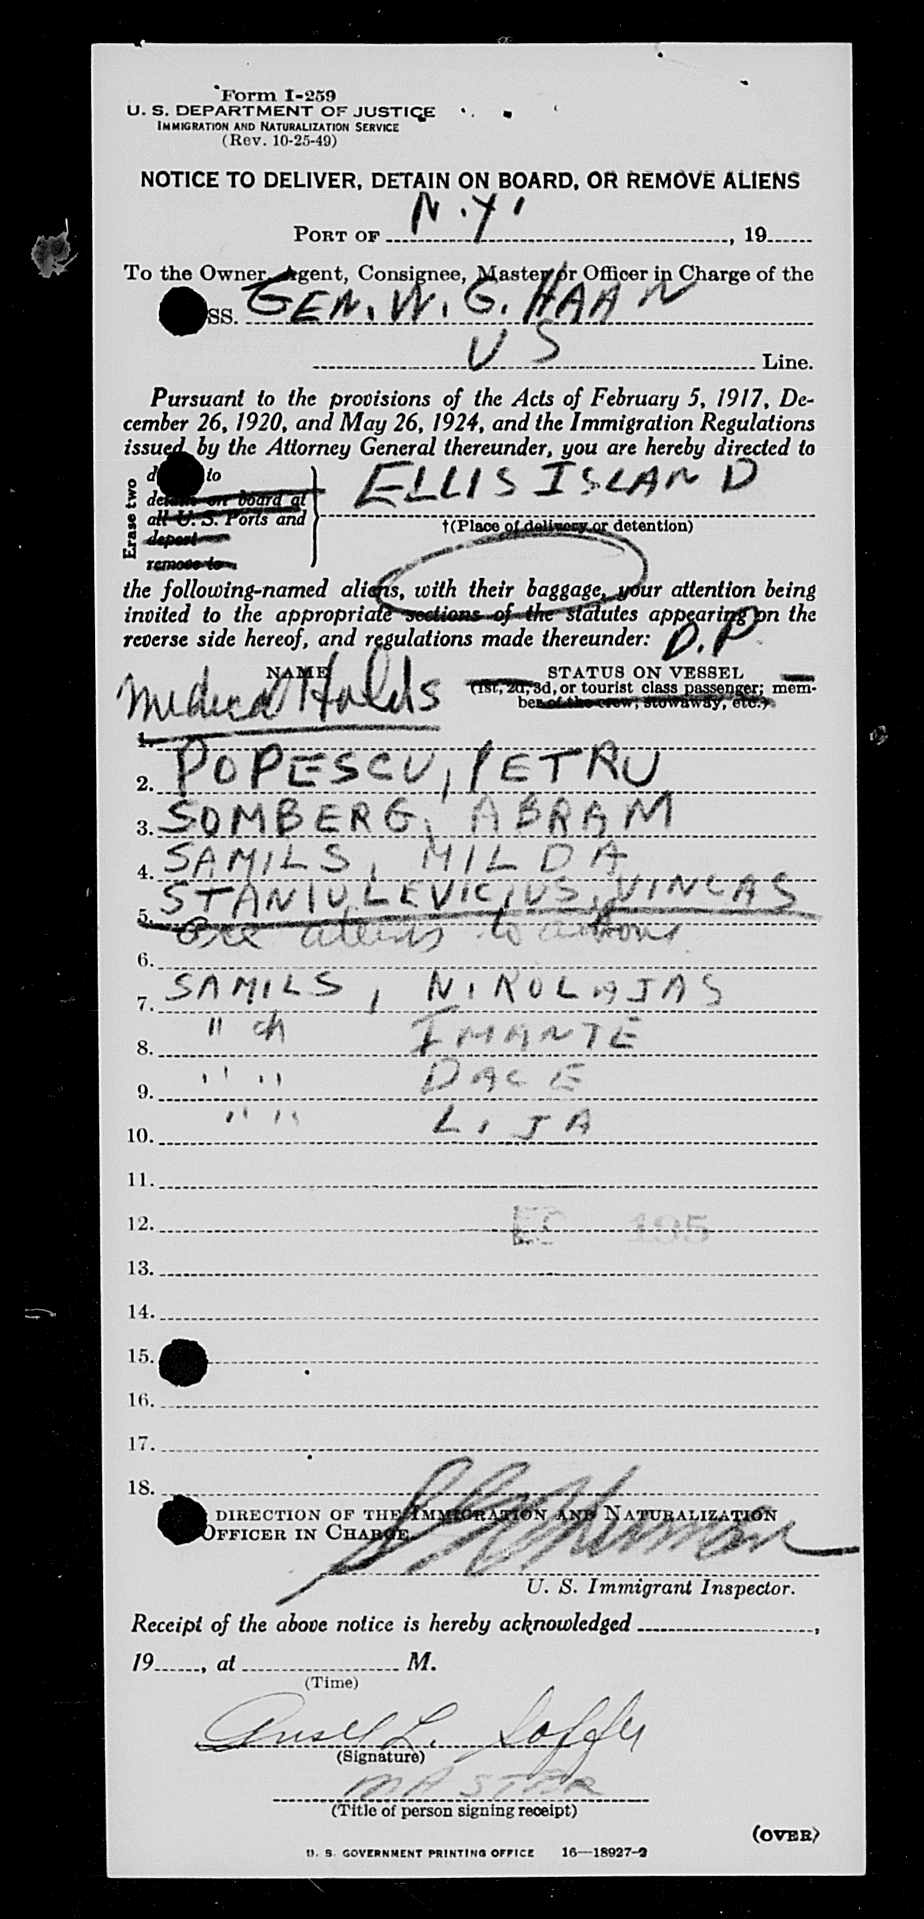 Form I-259
U. S. DEPARTMENT OF JUSTICE
IMMIGRATION AND NATURALIZATION SERVICE
(Rev. 10-25-49)
NOTICE TO DELIVER, DETAIN ON BOARD, OR REMOVE ALIENS
PORT OF N.Y. , 19
To the Owner, Agent, Consignee, Master or Officer in Charge of the
SS. GEN. W. G. HAAN
US Line.
Pursuant to the provisions of the Acts of February 5, 1917, De-
cember 26, 1920, and May 26, 1924, and the Immigration Regulations
issued by the Attorney General thereunder, you are hereby directed to
Erase two
to
detain on board at
all U. S. Ports and
deport
remove to
ELLIS ISLAND
†(Place of delivery or detention)
the following-named aliens, with their baggage, your attention being
invited to the appropriate sections of the statutes appearing on the
reverse side hereof, and regulations made thereunder:
D.P.
NAME STATUS ON VESSEL
(1st, 2d, 3d, or tourist class passenger; mem-
ber of the crew; stowaway, etc.)
Medical Holds
1.
2. POPESCU, PETRU
3. SOMBERG, ABRAM
4. SAMILS, MILDA
5. STANIULEVICIUS, VINCAS
6.
7. SAMILS, NIKOLAJAS
8. " ch IMANTE
9. " " DACE
10. " " LIJA
11.
12. 195
13.
14.
15.
16.
17.
18.
DIRECTION OF THE IMMIGRATION AND NATURALIZATION
OFFICER IN CHARGE.
U. S. Immigrant Inspector.
Receipt of the above notice is hereby acknowledged ,
19 , at M.
(Time)
Ansel L.
(Signature)
MASTER
(Title of person signing receipt)
(OVER)
U. S. GOVERNMENT PRINTING OFFICE 16—18927-2